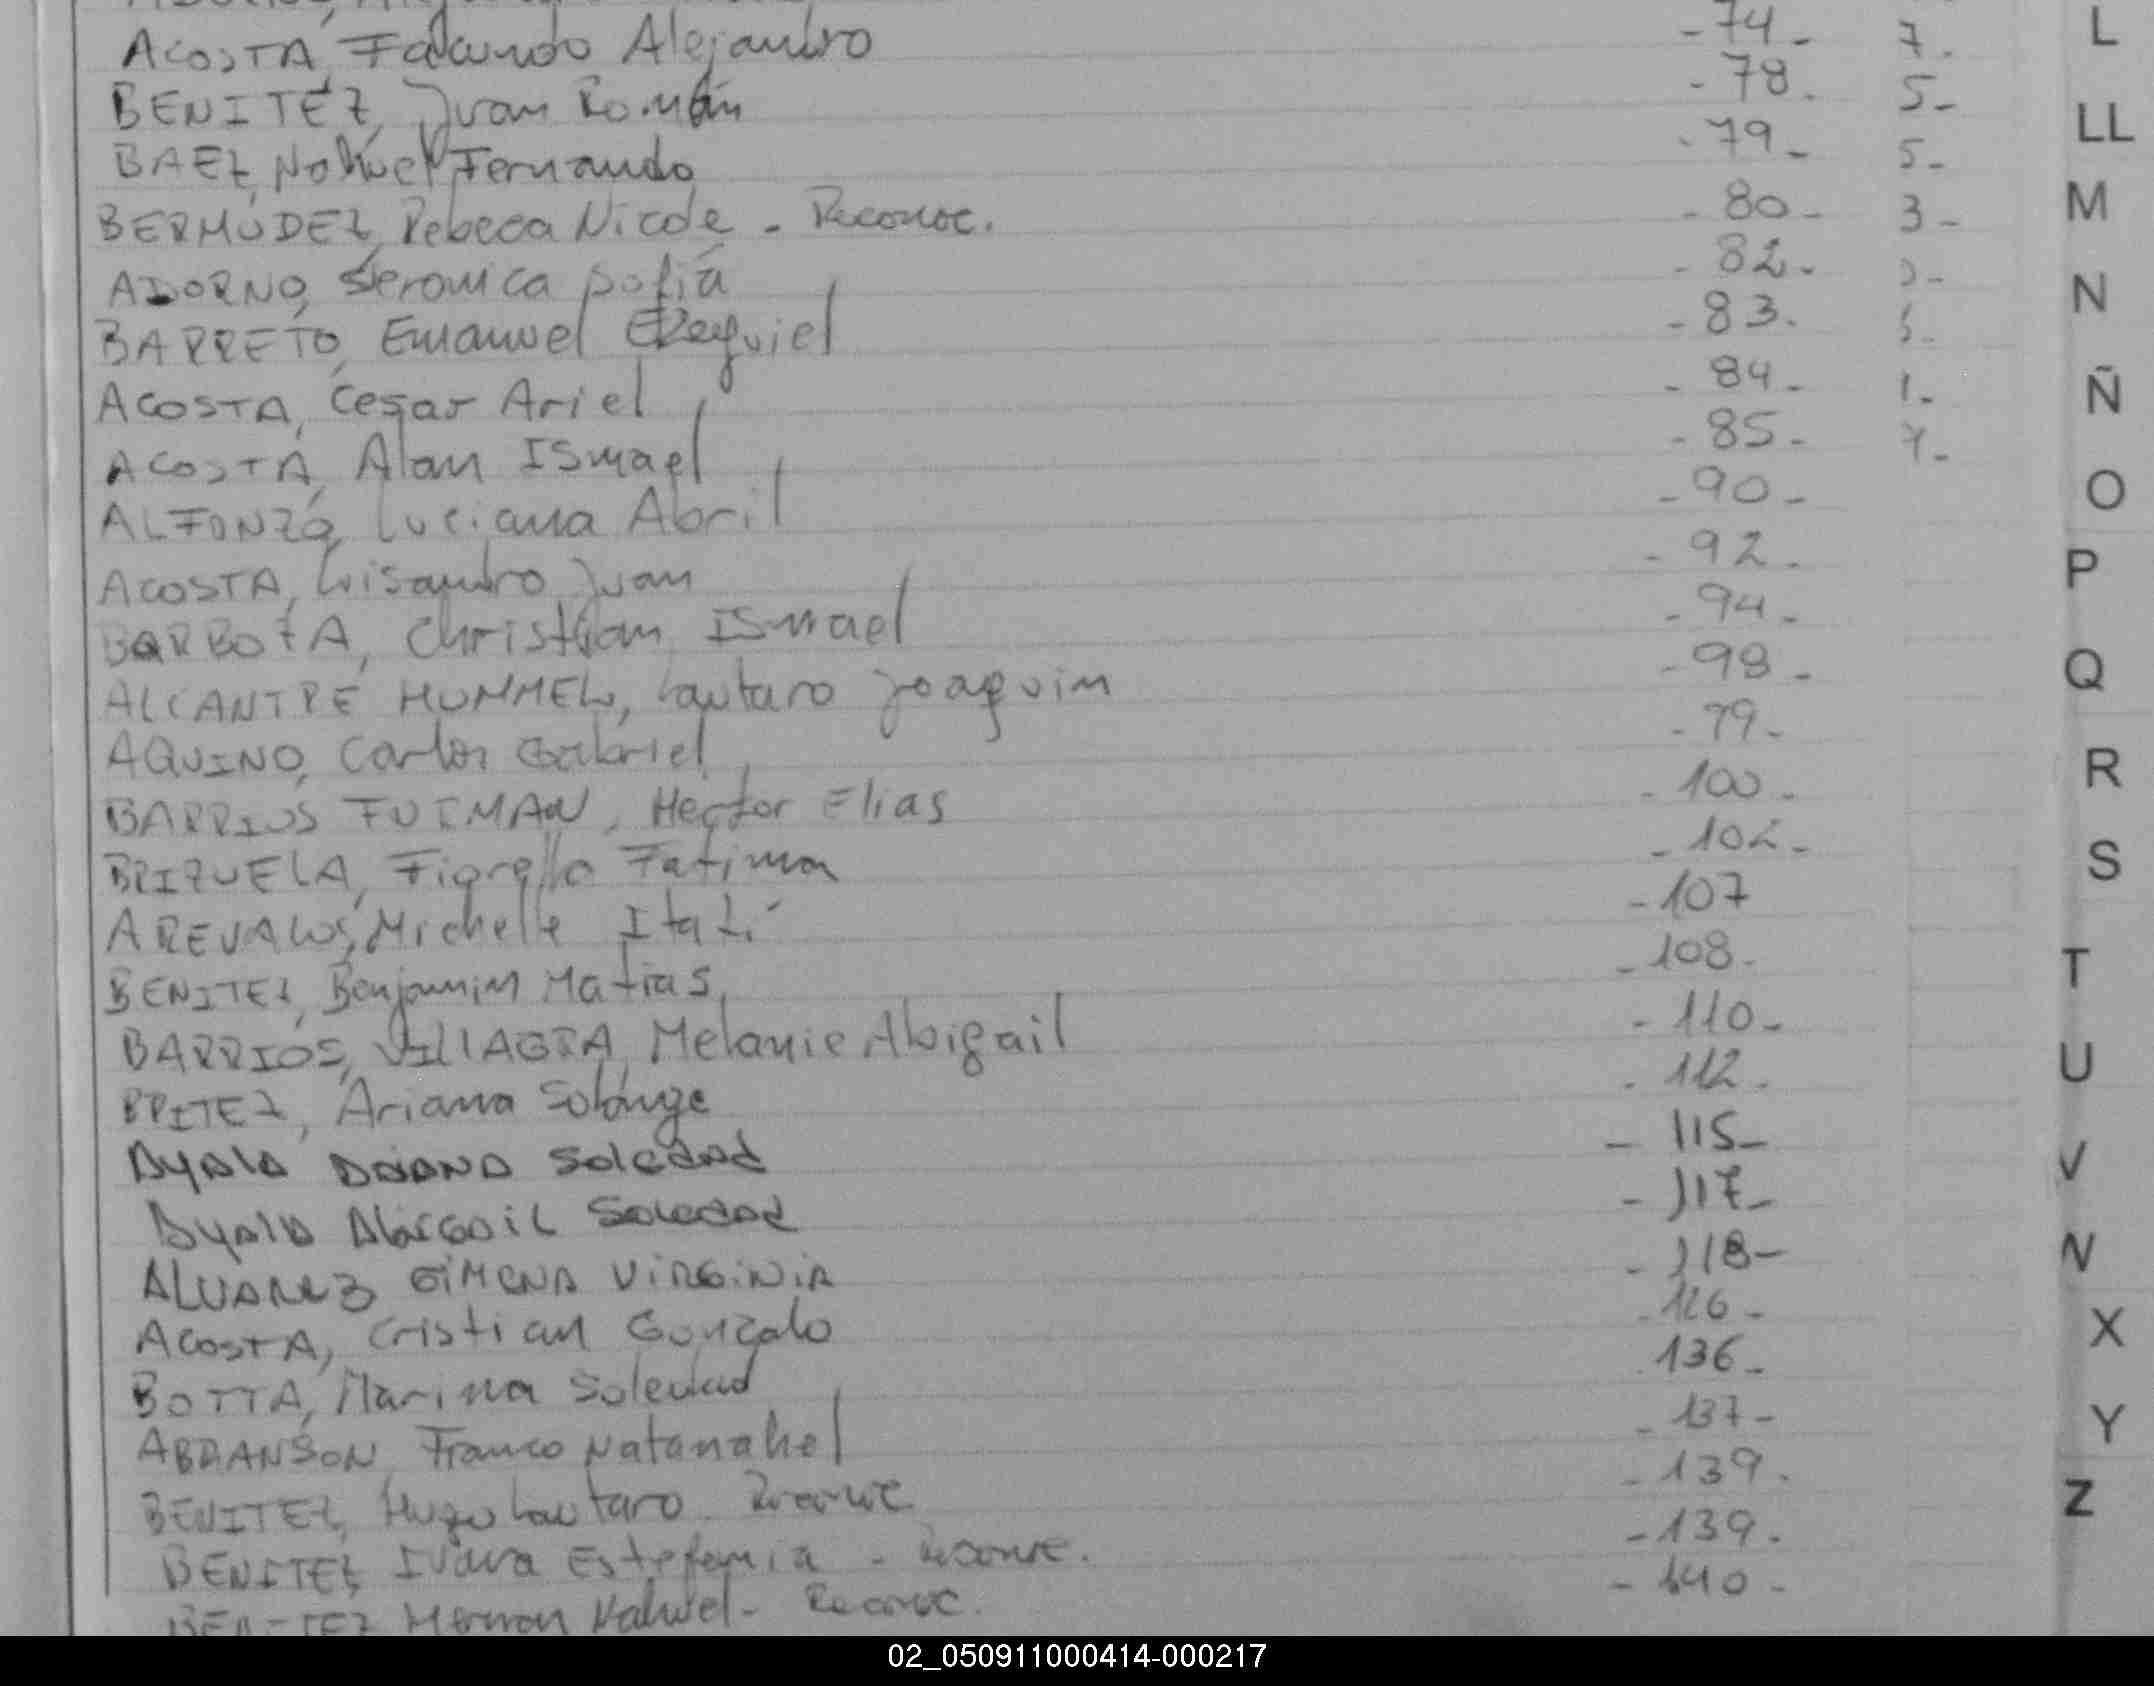 ACOSTA, Facundo Alejandro -74- 7-
BENITEZ, Juan Román -78- 5-
BAEZ, Nahuel Fernando -79- 5-
BERMÚDEZ, Rebeca Nicole - Reconoc. -80- 3-
ADORNO, Seronica Sofía -82-
BARRETO, Emanuel Ezequiel -83-
ACOSTA, Cesar Ariel -84- 1-
ACOSTA, Alan ISmael -85-
ALFONZO, Luciana Abril -90-
ACOSTA, Lisandro Juan -92-
BARBOZA, Christian ISmael -94-
ALCANTRE HUMMEL, Lautaro Joaquin -98-
AQUINO, Carlos Gabriel -79-
BARRIOS FUIMAN, Hector Elias -100-
BRIZUELA, Fiorella Fatima -102-
AREVALOS, Michelle Itatí -107
BENITEZ, Benjamin Matias -108-
BARRIOS, VILLAGRA, Melanie Abigail -110-
BRITEZ, Ariana Solange -112-
Ayala DAIANA Soledad - 115-
Ayala Abigail Soledad -117-
ALVAREZ GIMENA VIRGINIA -118-
ACOSTA, Cristian Gonzalo -126-
BOTTA, Marina Soledad 136-
ABRANSON, Franco Natanahel -137-
BENITEZ, Hugo Lautaro. Reconoc -139-
BENITEZ, Ivana Estefania - Reconoc. -139-
BENITEZ Hernan Nahuel - Reconoc. -140-
L
LL
M
N
Ñ
O
P
Q
R
S
T
U
V
X
Y
Z
02_050911000414-000217